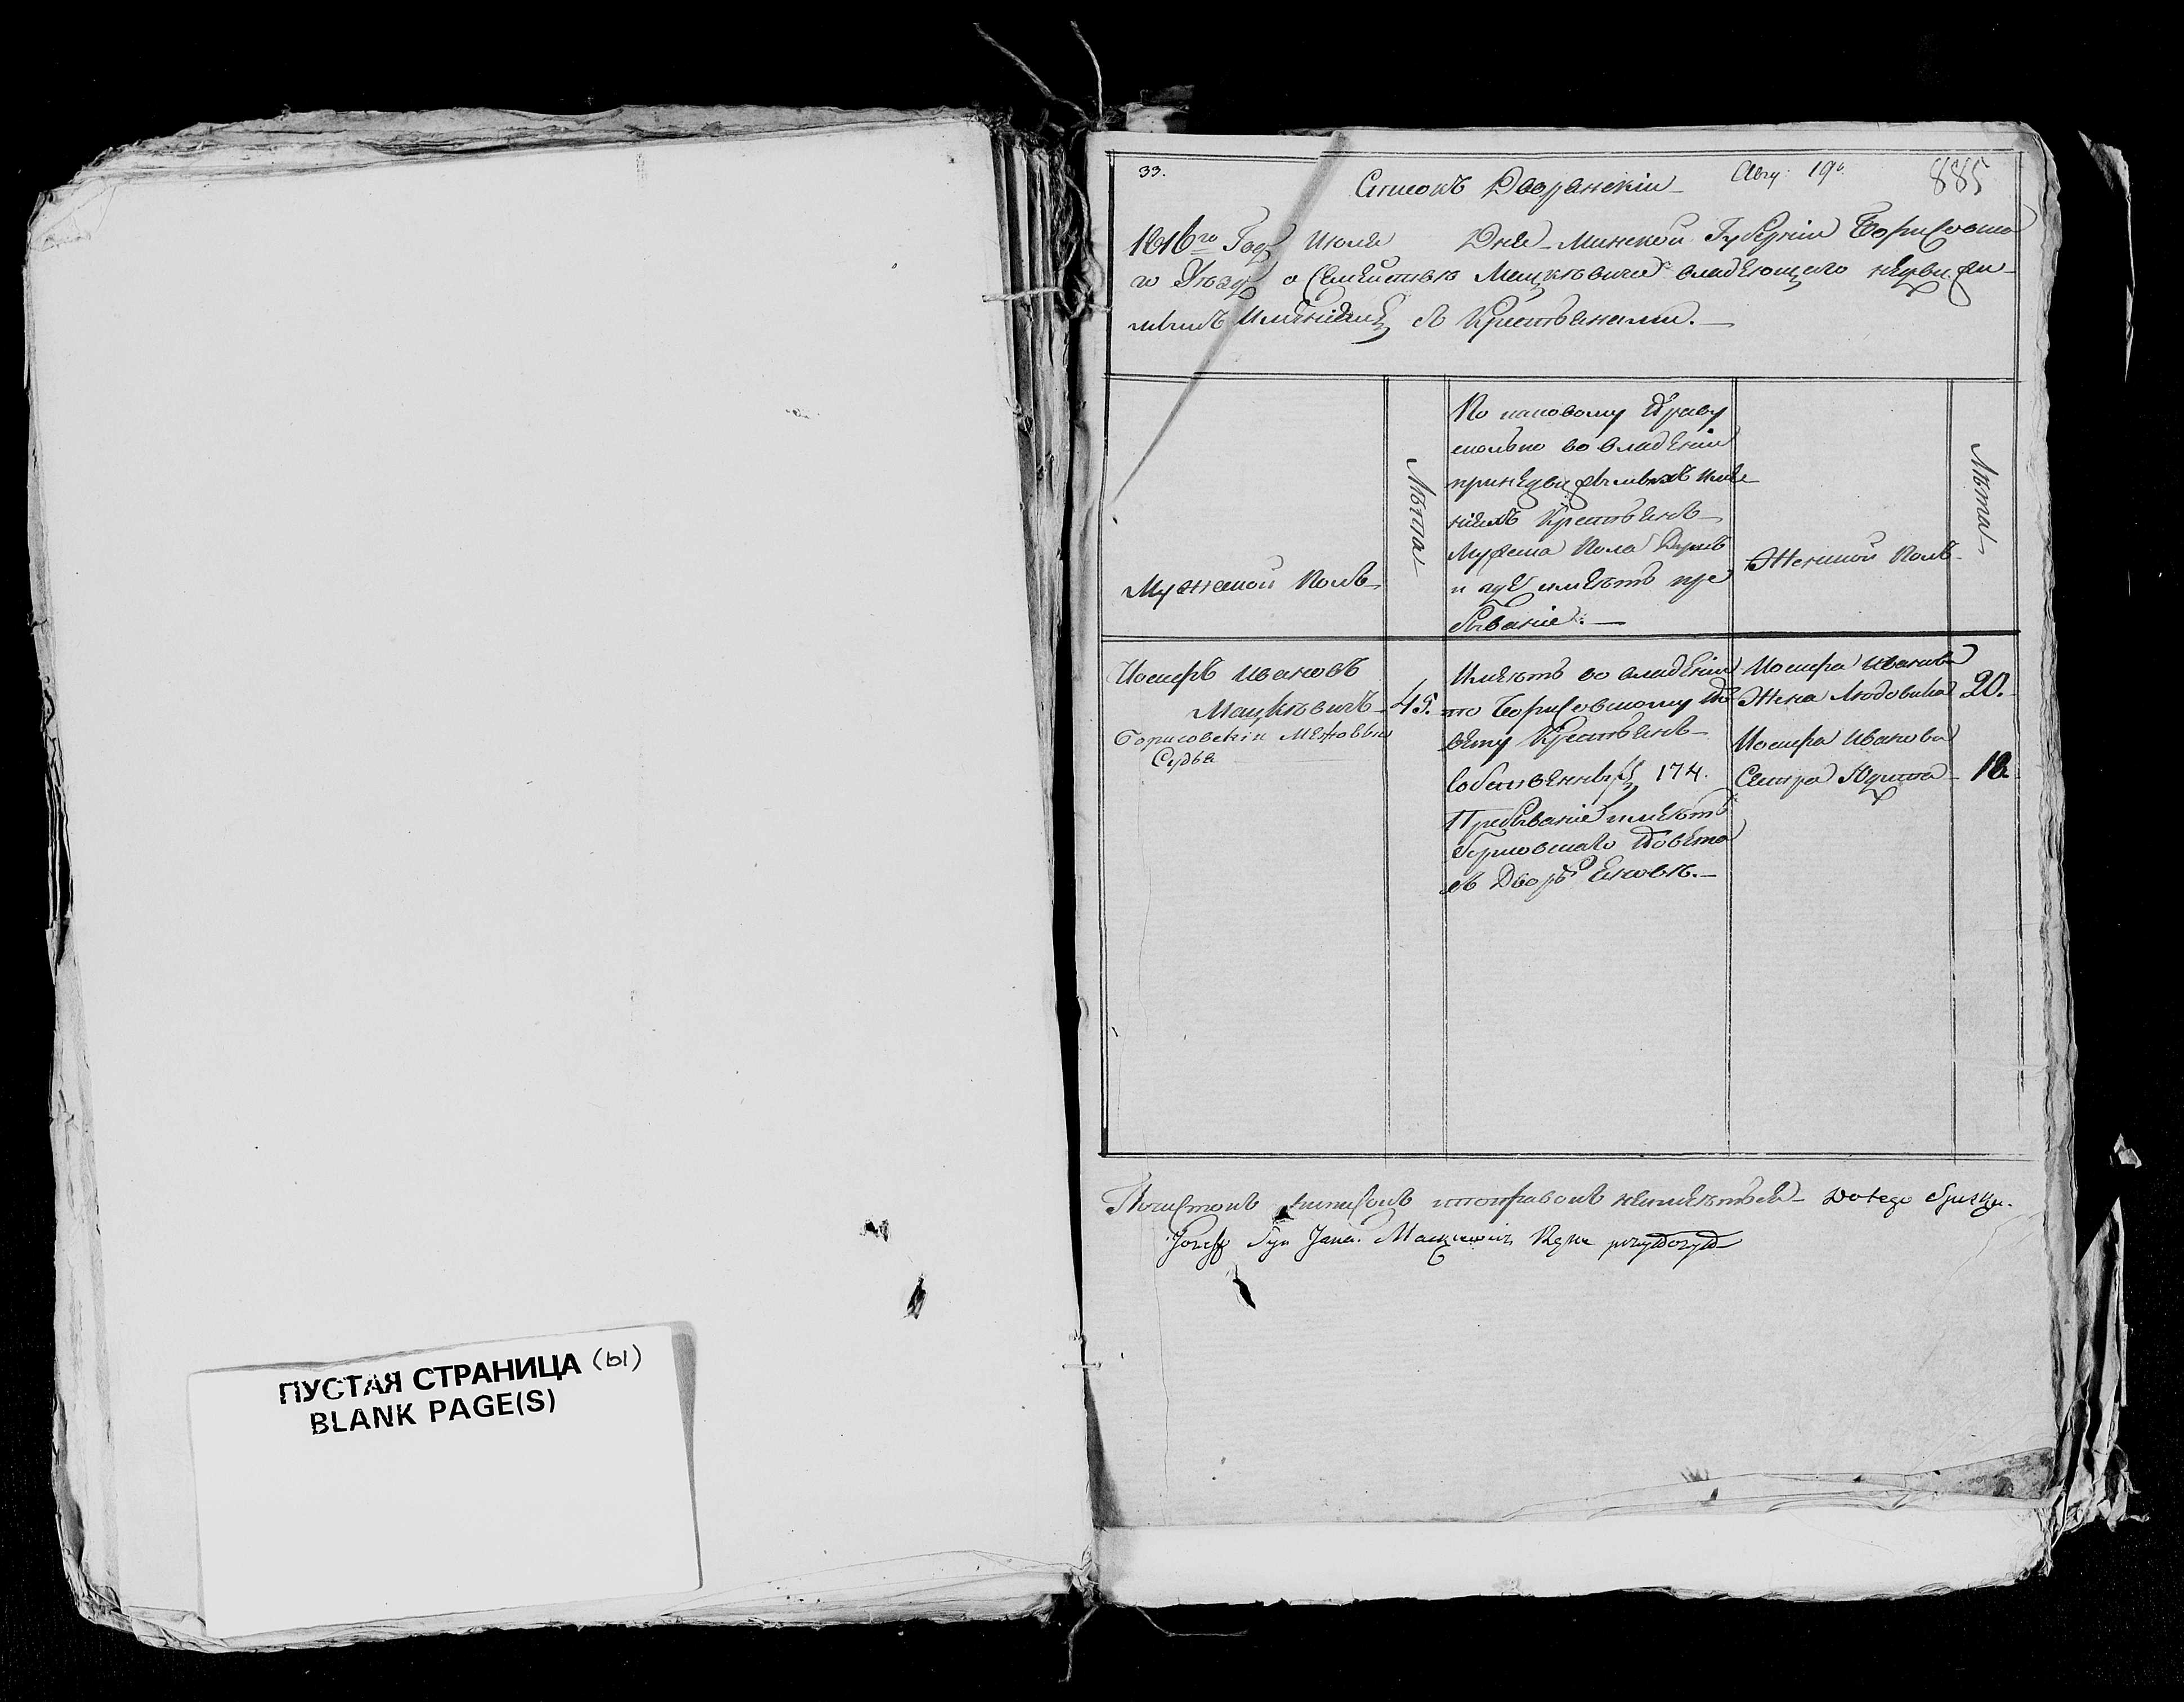 ПУСТАЯ СТРАНИЦА (ы)
BLANK PAGE(S)
33.
Списокъ Дворянскіи
Авгу: 19
885
1816го Года Июля Дня Минской Губерніи Борисовска
го Уѣзда о Семействѣ Мацкѣвича владѣющаго недвижи
мымъ Имѣніемъ съ Крестьянами.
Мужеской Полъ
Лѣта
По каковому Праву
сколько во владѣніи
при недвижимыхъ имѣ
ніяхъ Крестьянъ
Мужеска Пола Душъ
и где имѣетъ пре
бываніе.
Женской Полъ
Лѣта
Иосифъ Ивановъ
Мацкѣвичъ
45.
Борисовскіи Межовыи
Судья
Имѣетъ во владѣніи
по Борисовскому По
вѣту Крестьянъ
Собственныхъ 174.
Пребываніе имѣетъ
Борисовскаго Повѣта
въ Дворѣ Еновѣ.
Иосифа Иванова
Жена Людовика
20.
Иосифа Иванова
Сестра Юдита
18.
неимѣетъся Do tego Spisku.
Jozeff Syn Jana Mackiewicz Rękę